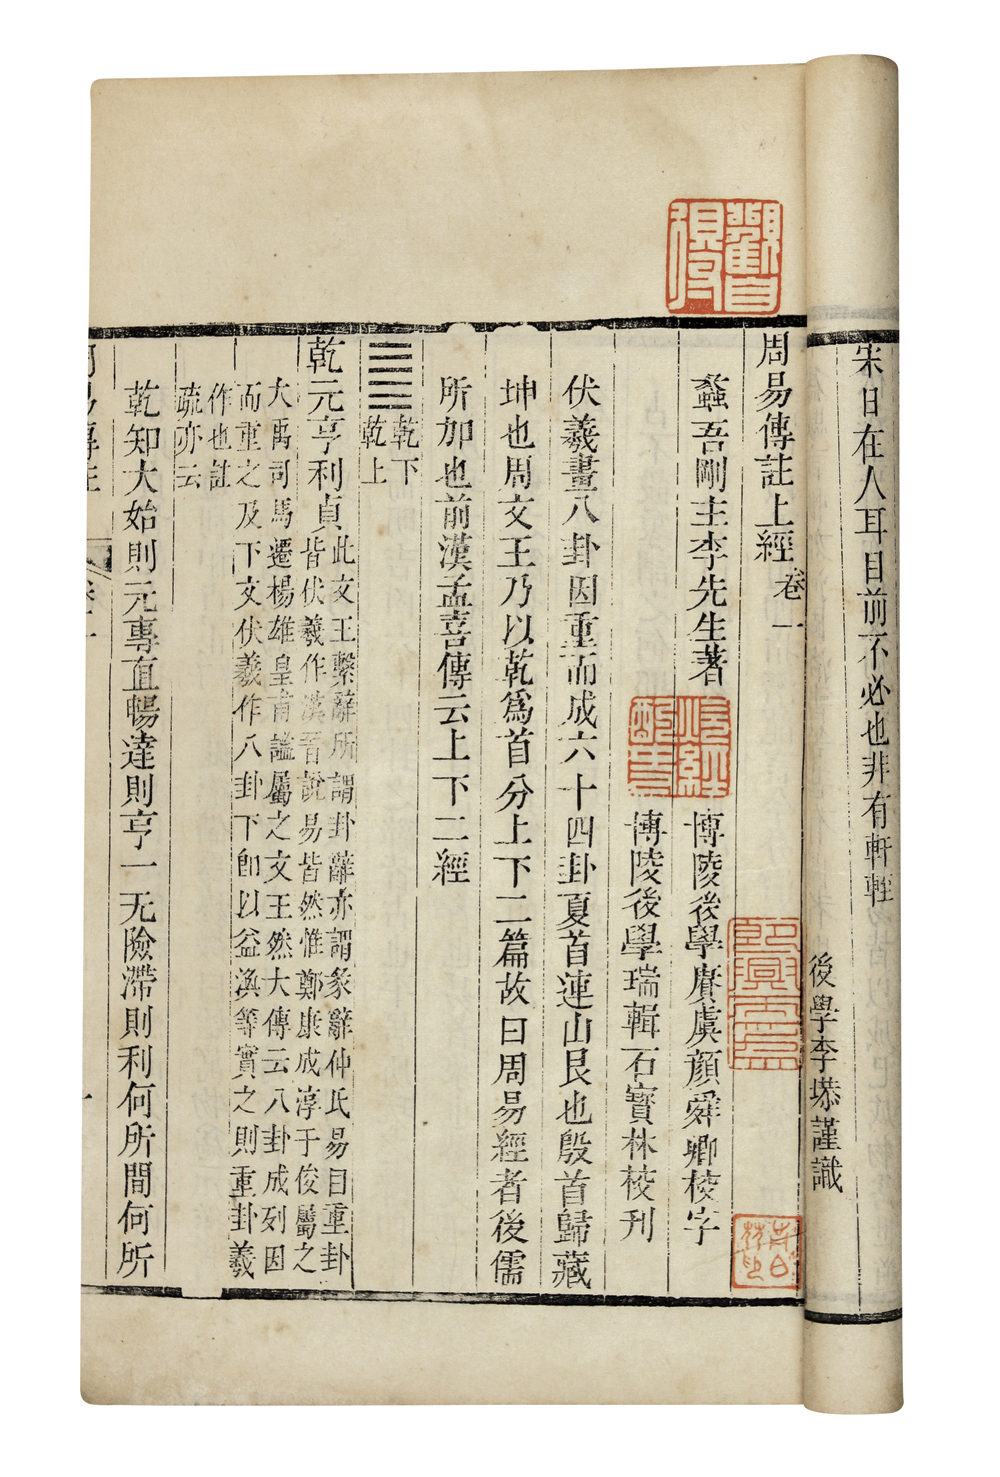 宋日在人耳目前不必也非有軒輊
後學李塨謹識
周易傳註上經卷一
蠡吾剛主李先生著
博陵後學賡虞顏舜卿校字
博陵後學瑞輯石寶林校刊
伏羲畫八卦因重而成六十四卦夏首連山艮也殷首歸藏
坤也周文王乃以乾為首分上下二篇故曰周易經者後儒
所加也前漢孟喜傳云上下二經
乾下
乾上
乾元亨利貞
此文王繫辭所謂卦辭亦謂彖辭仲氏易曰重卦
皆伏羲作漢晉說易皆然惟鄭康成淳于俊屬之
大禹司馬遷楊雄皇甫謐屬之文王然大傳云八卦成列因
而重之及下文伏羲作八卦下卽以益渙等實之則重卦羲
作也註
疏亦云
乾知大始則元專直暢達則亨一无險滯則利何所間何所
周易傳註
卷一
一
觀自
得